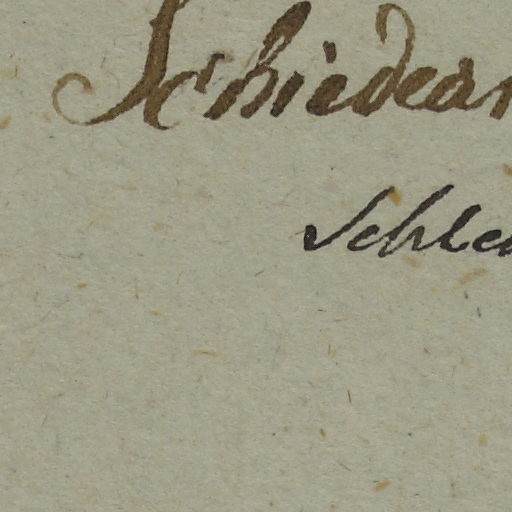 Schiedean
Schlec